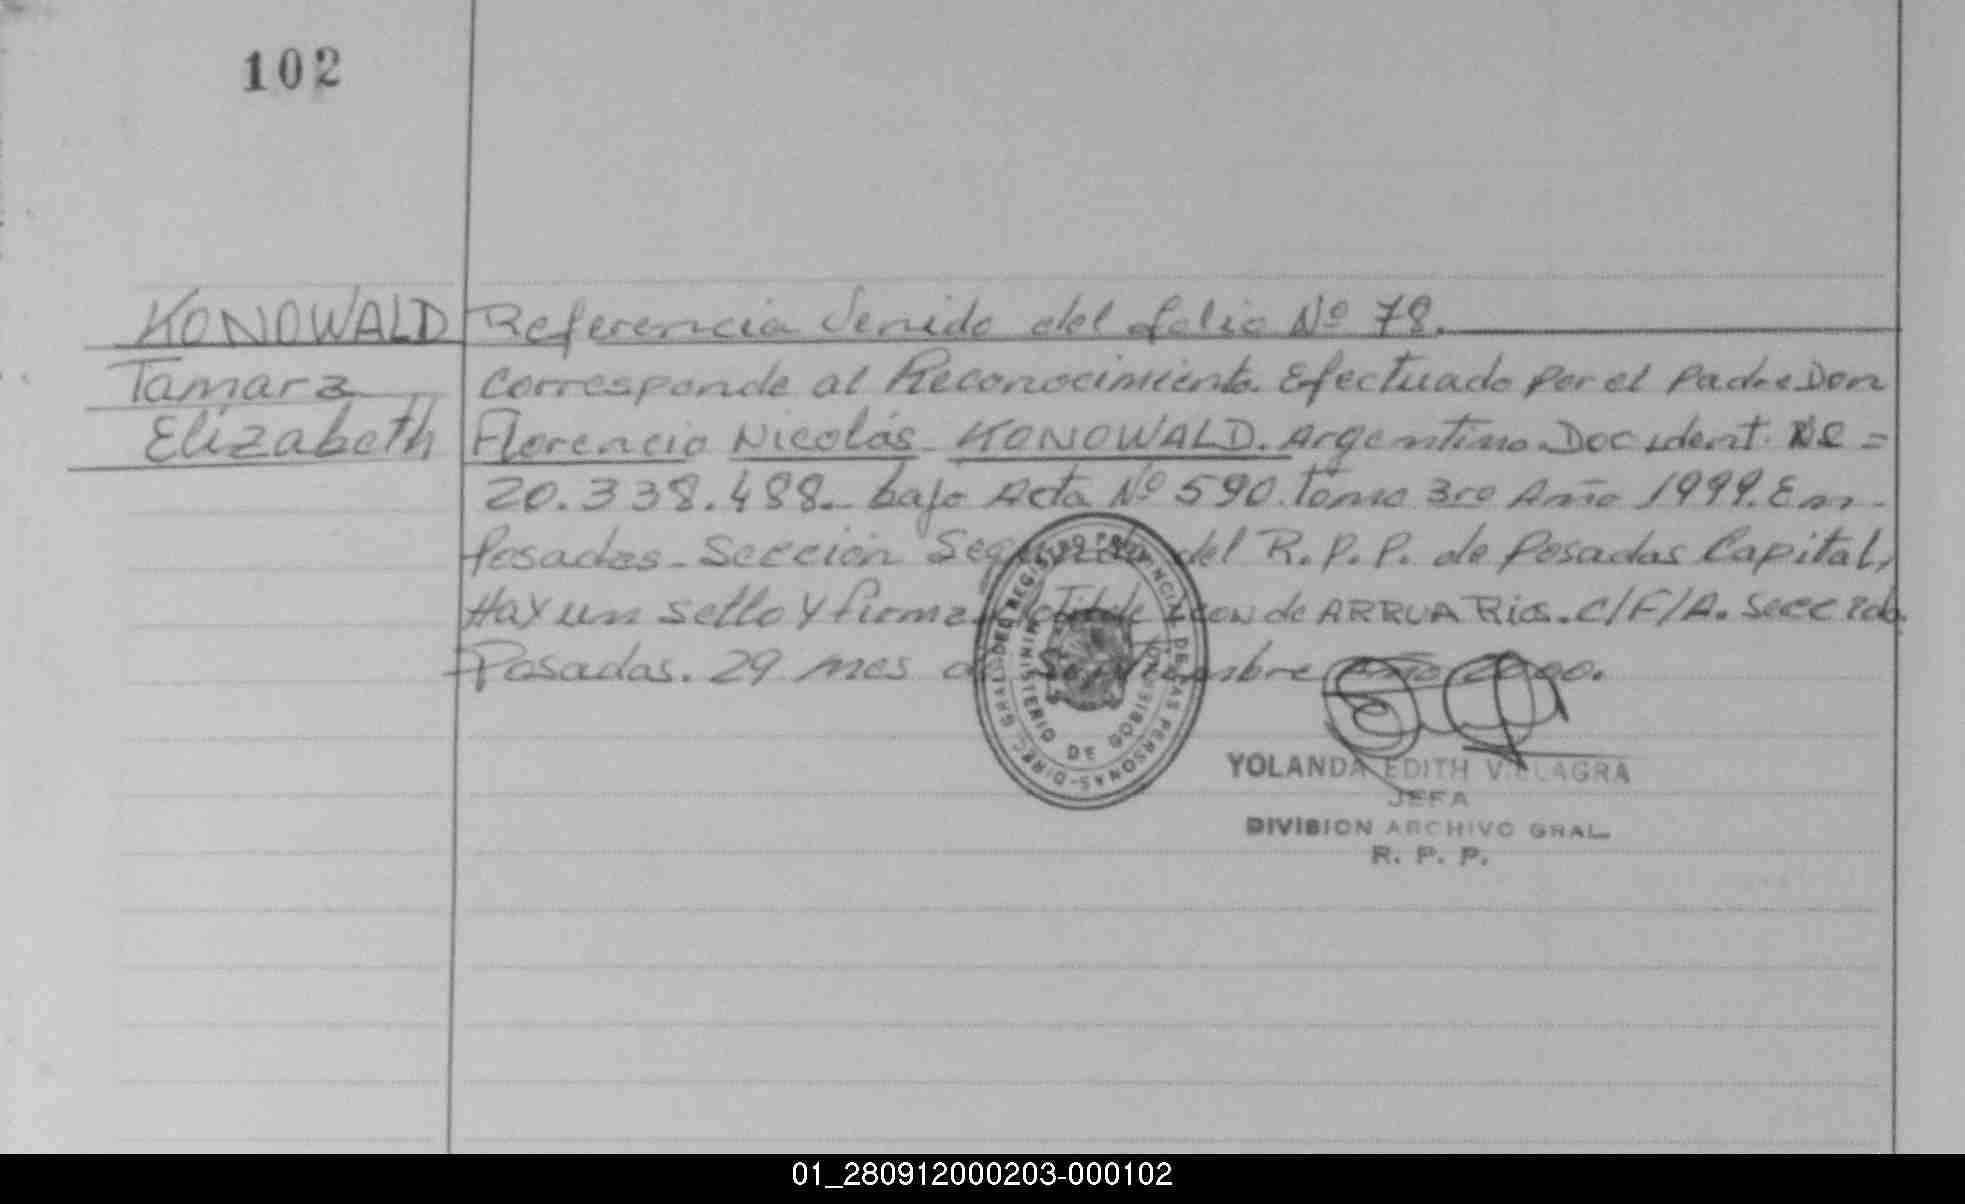 102
KONOWALD Referencia Venido del folio Nº 78.
Tamara corresponde al Reconocimiento Efectuado por el padre Don
Elizabeth Florencio Nicolás KONOWALD. Argentino. Doc ident. Nº =
20.338.488. bajo Acta Nº 590. tomo 3ro Año 1999. En
Posadas. Sección del R.P.P. de Posadas Capital,
Hay un sello y firma de ARRUA Rios. C/F/A. Secc 2da.
Posadas. 29 mes Año 2000.
DIREC. GRAL. DEL REGISTRO PROVINCIAL DE LAS PERSONAS
MINISTERIO DE GOBIERNO
YOLANDA EDITH VILLAGRA
JEFA
DIVISION ARCHIVO GRAL.
R. P. P.
01_280912000203-000102